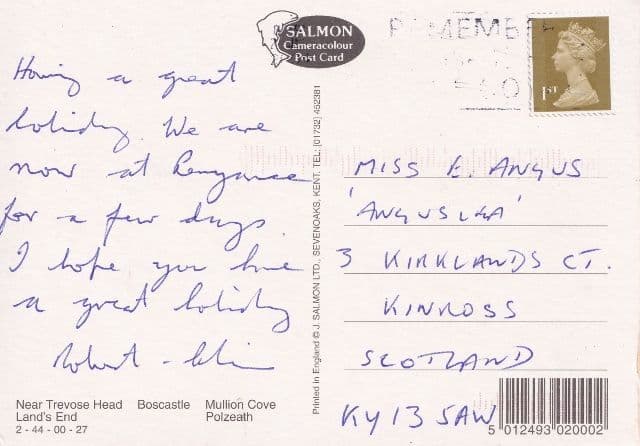 Having a great
holiday. We are
now at Penzance
for a few days.
I hope you have
a great holiday
Robert -
SALMON
Cameracolour
Post Card
REMEMBE
1ST
MISS E. ANGUS
'ANGUSLEA'
3 KIRKLANDS CT.
KINROSS
SCOTLAND
KY13 5AW
Printed in England © J. SALMON LTD., SEVENOAKS, KENT. TEL: (01732) 452381
Near Trevose Head Boscastle Mullion Cove
Land's End Polzeath
2 - 44 - 00 - 27
5 012493 020002